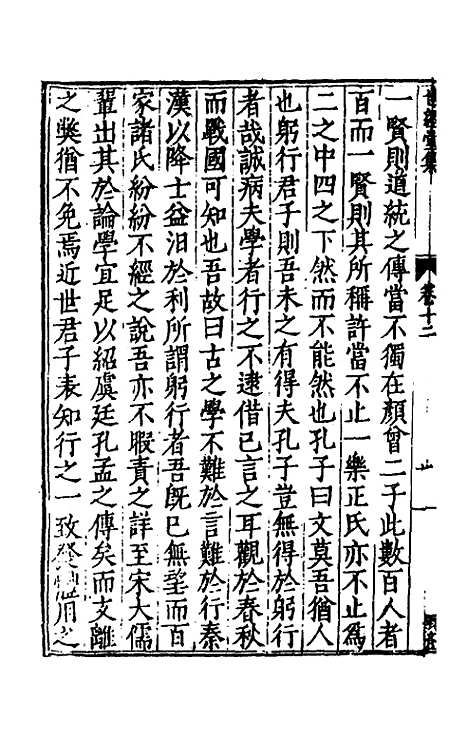 世經堂集
卷十二
一賢則道統之傳當不獨在顏曾二子此數百人者
百而一賢則其所稱許當不止一樂正氏亦不止爲
二之中四之下然而不能然也孔子曰文莫吾猶人
也躬行君子則吾未之有得夫孔子豈無得於躬行
者哉誠病夫學者行之不逮借已言之耳觀於春秋
而戰國可知也吾故曰古之學不難於言難於行秦
漢以降士益汨於利所謂躬行者吾旣已無望而百
家諸氏紛紛不經之說吾亦不暇責之詳至宋大儒
輩出其於論學宜足以紹虞廷孔孟之傳矣而支離
之獘猶不免焉近世君子表知行之一致發體用之